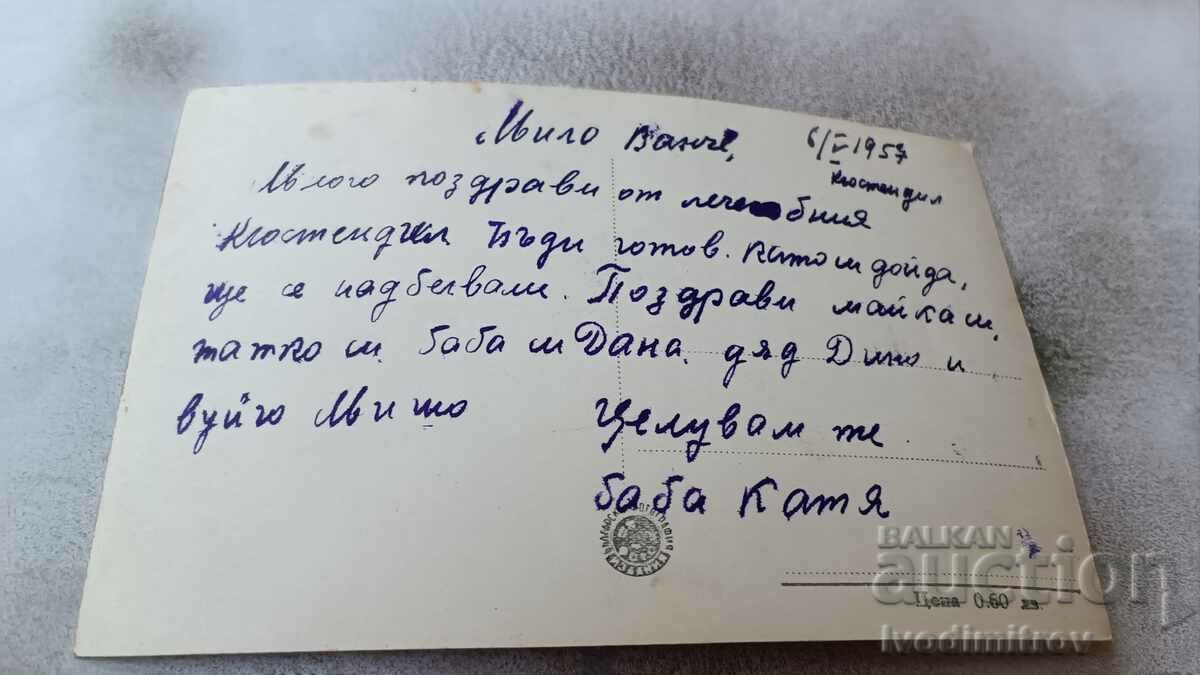 Мило Ванче,
6/V 1957
Кюстендил
Много поздрави от лечебния
Кюстендил Бъди готов. Като си дойда,
ще се надбягвам. Поздрави майка си,
татко си, баба и Дана, дяд Дино и
вуйчо Мишо
Целувам те
баба Катя
Цена 0.60 лв.
BALKAN
auction
Ivodimitrov